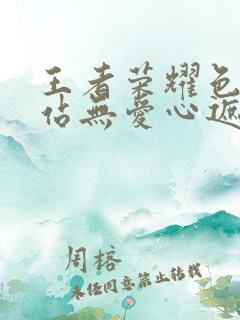 王者荣耀色
佔無爱心遮
周榕
未经同意禁止转载